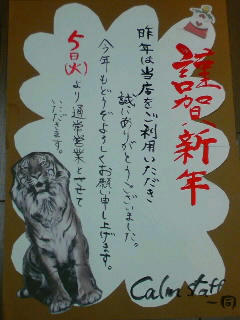 謹賀新年
昨年は当店をご利用いただき
誠にありがとうございました。
今年もどうぞよろしくお願い申し上げます。
5日(火)より通常営業とさせて
いただきます。
Calm staff
一同